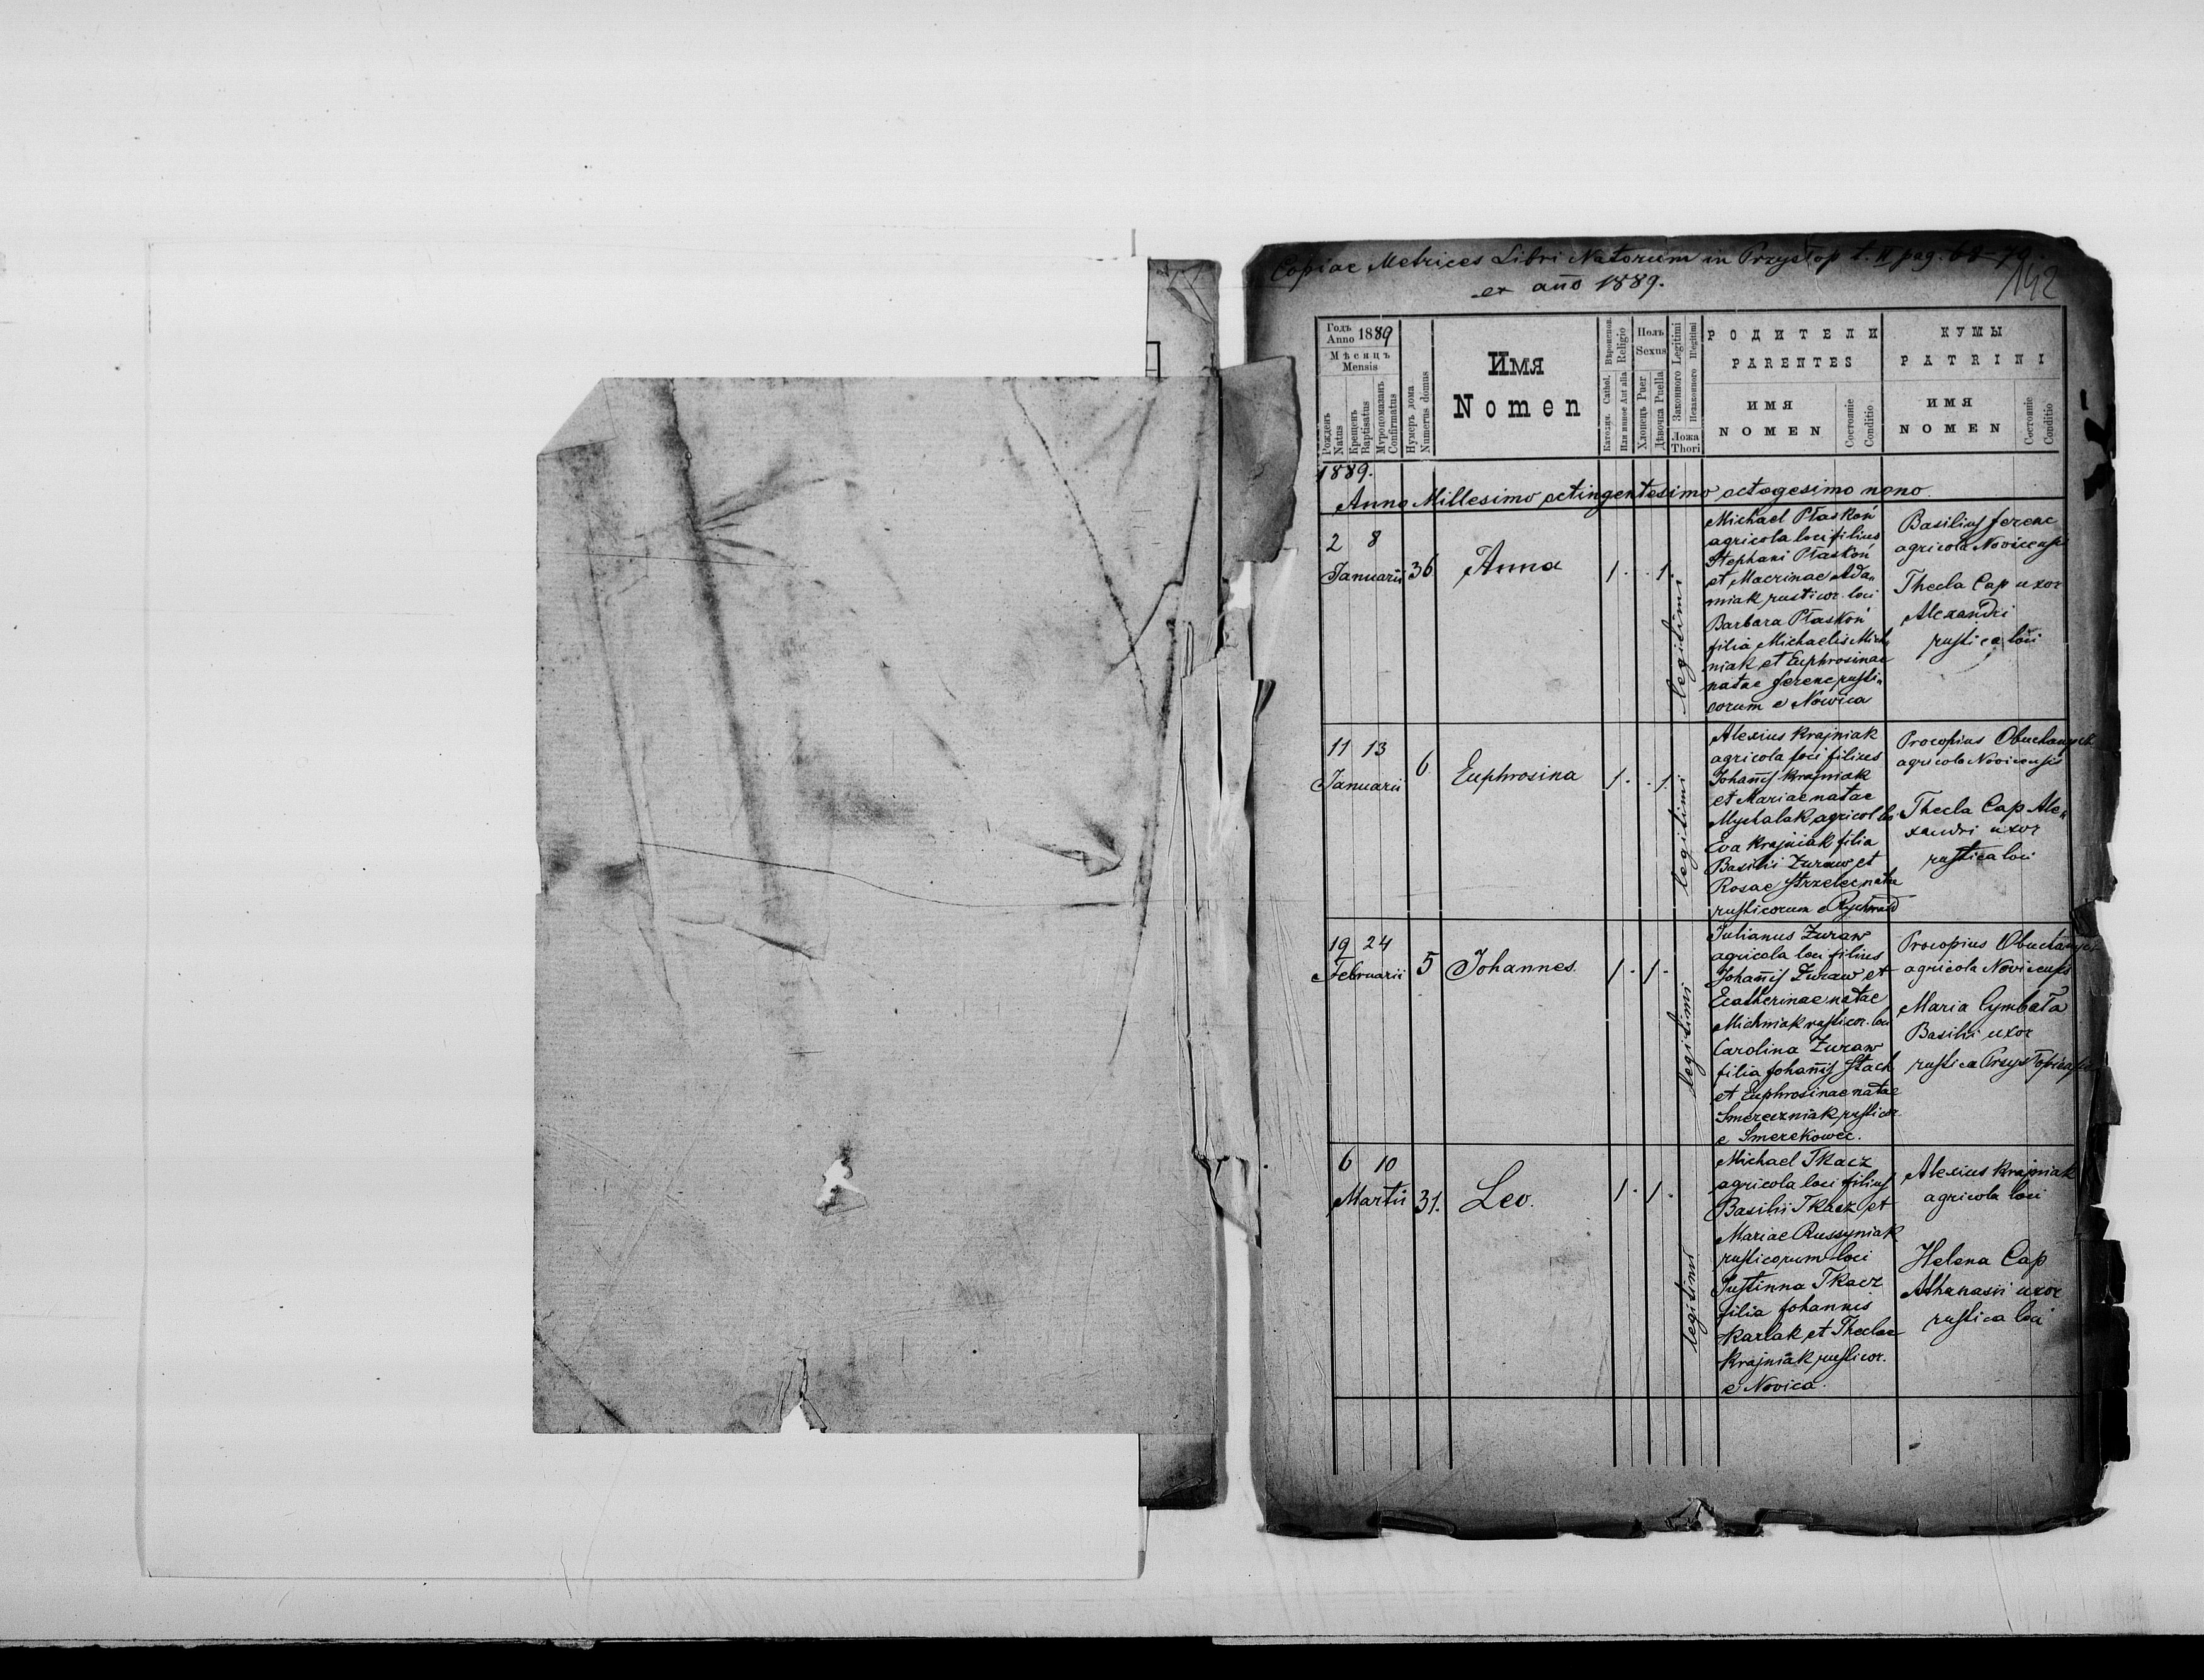 Copiae Metrices Libri Natorum in Przysłop t. II pag. 68-70.
ex año 1889.
142
Годъ
Anno 1889
Мѣсяцъ
Mensis
Рожденъ
Natus
Крещенъ
Baptisatus
Муропомазанъ
Confirmatus
Нумеръ дома
Numerus domus
Имя
Nomen
Вѣроиспов.
Religio
Католич. Cathol.
Или инное Aut alia
Полъ
Sexus
Хлопецъ Puer
Дѣвочка Puella
Законного Legitimi
Незаконного Illegitimi
Ложа
Thori
РОДИТЕЛИ
PARENTES
ИМЯ
NOMEN
Состояніе
Conditio
КУМЫ
PATRINI
ИМЯ
NOMEN
Состояніе
Conditio
1889.
Anno Millesimo octingentesimo octogesimo nono
2 8
Januarii
36
Anna
1 . . 1.
legitimi
Michael Płaskoń
agricola loci filius
Stephani Płaskoń
et Macrinae Ada„
miak rusticor. loci
Barbara Płaskoń
filia Michaelis Mich
niak et Euphrosinae
natae Ferenc rusti„
corum e Nowica
Basilius Ferenc
agricola Novicensis
Thecla Cap uxor
Alexandri
rustica loci
11 13
Januarii
6
Euphrosina
1 . . 1.
legitimi
Alexius Krajniak
agricola loci filius
Johañis Krajniak
et Mariae natae
Mychalak agricol. lo.
Eva Krajniak filia
Basilii Żuraw et
Rosae Strzelec natae
rusticorum e Rychwałd
Procopius Obuchanych
agricola Novicensis
Thecla Cap Ale„
xandri uxor
rustica loci
19 24
Februarii
5
Johannes.
1 . 1 .
legitimi
Julianus Żuraw
agricola loci filius
Johañis Żuraw et
Ecatherinae natae
Michniak rusticor. loci
Carolina Żuraw
filia Johañis Stach
et Euphrosinae natae
Smereczniak rusticor.
e Smerekowec.
Procopius
agricola Novicensis
Maria Cymbała
Basilii uxor
rustica
6 10
Martii
31.
Leo.
1 . 1 .
legitimi
Michael Tkacz
agricola loci filius
Basilii Tkacz et
Mariae Russyniak
rusticorum loci
Justinna Tkacz
filia Johannis
Karlak et Theclae
Krajniak rusticor.
e Novica.
Alexius Krajniak
agricola loci
Helena Cap
Athanasii uxor
rustica loci